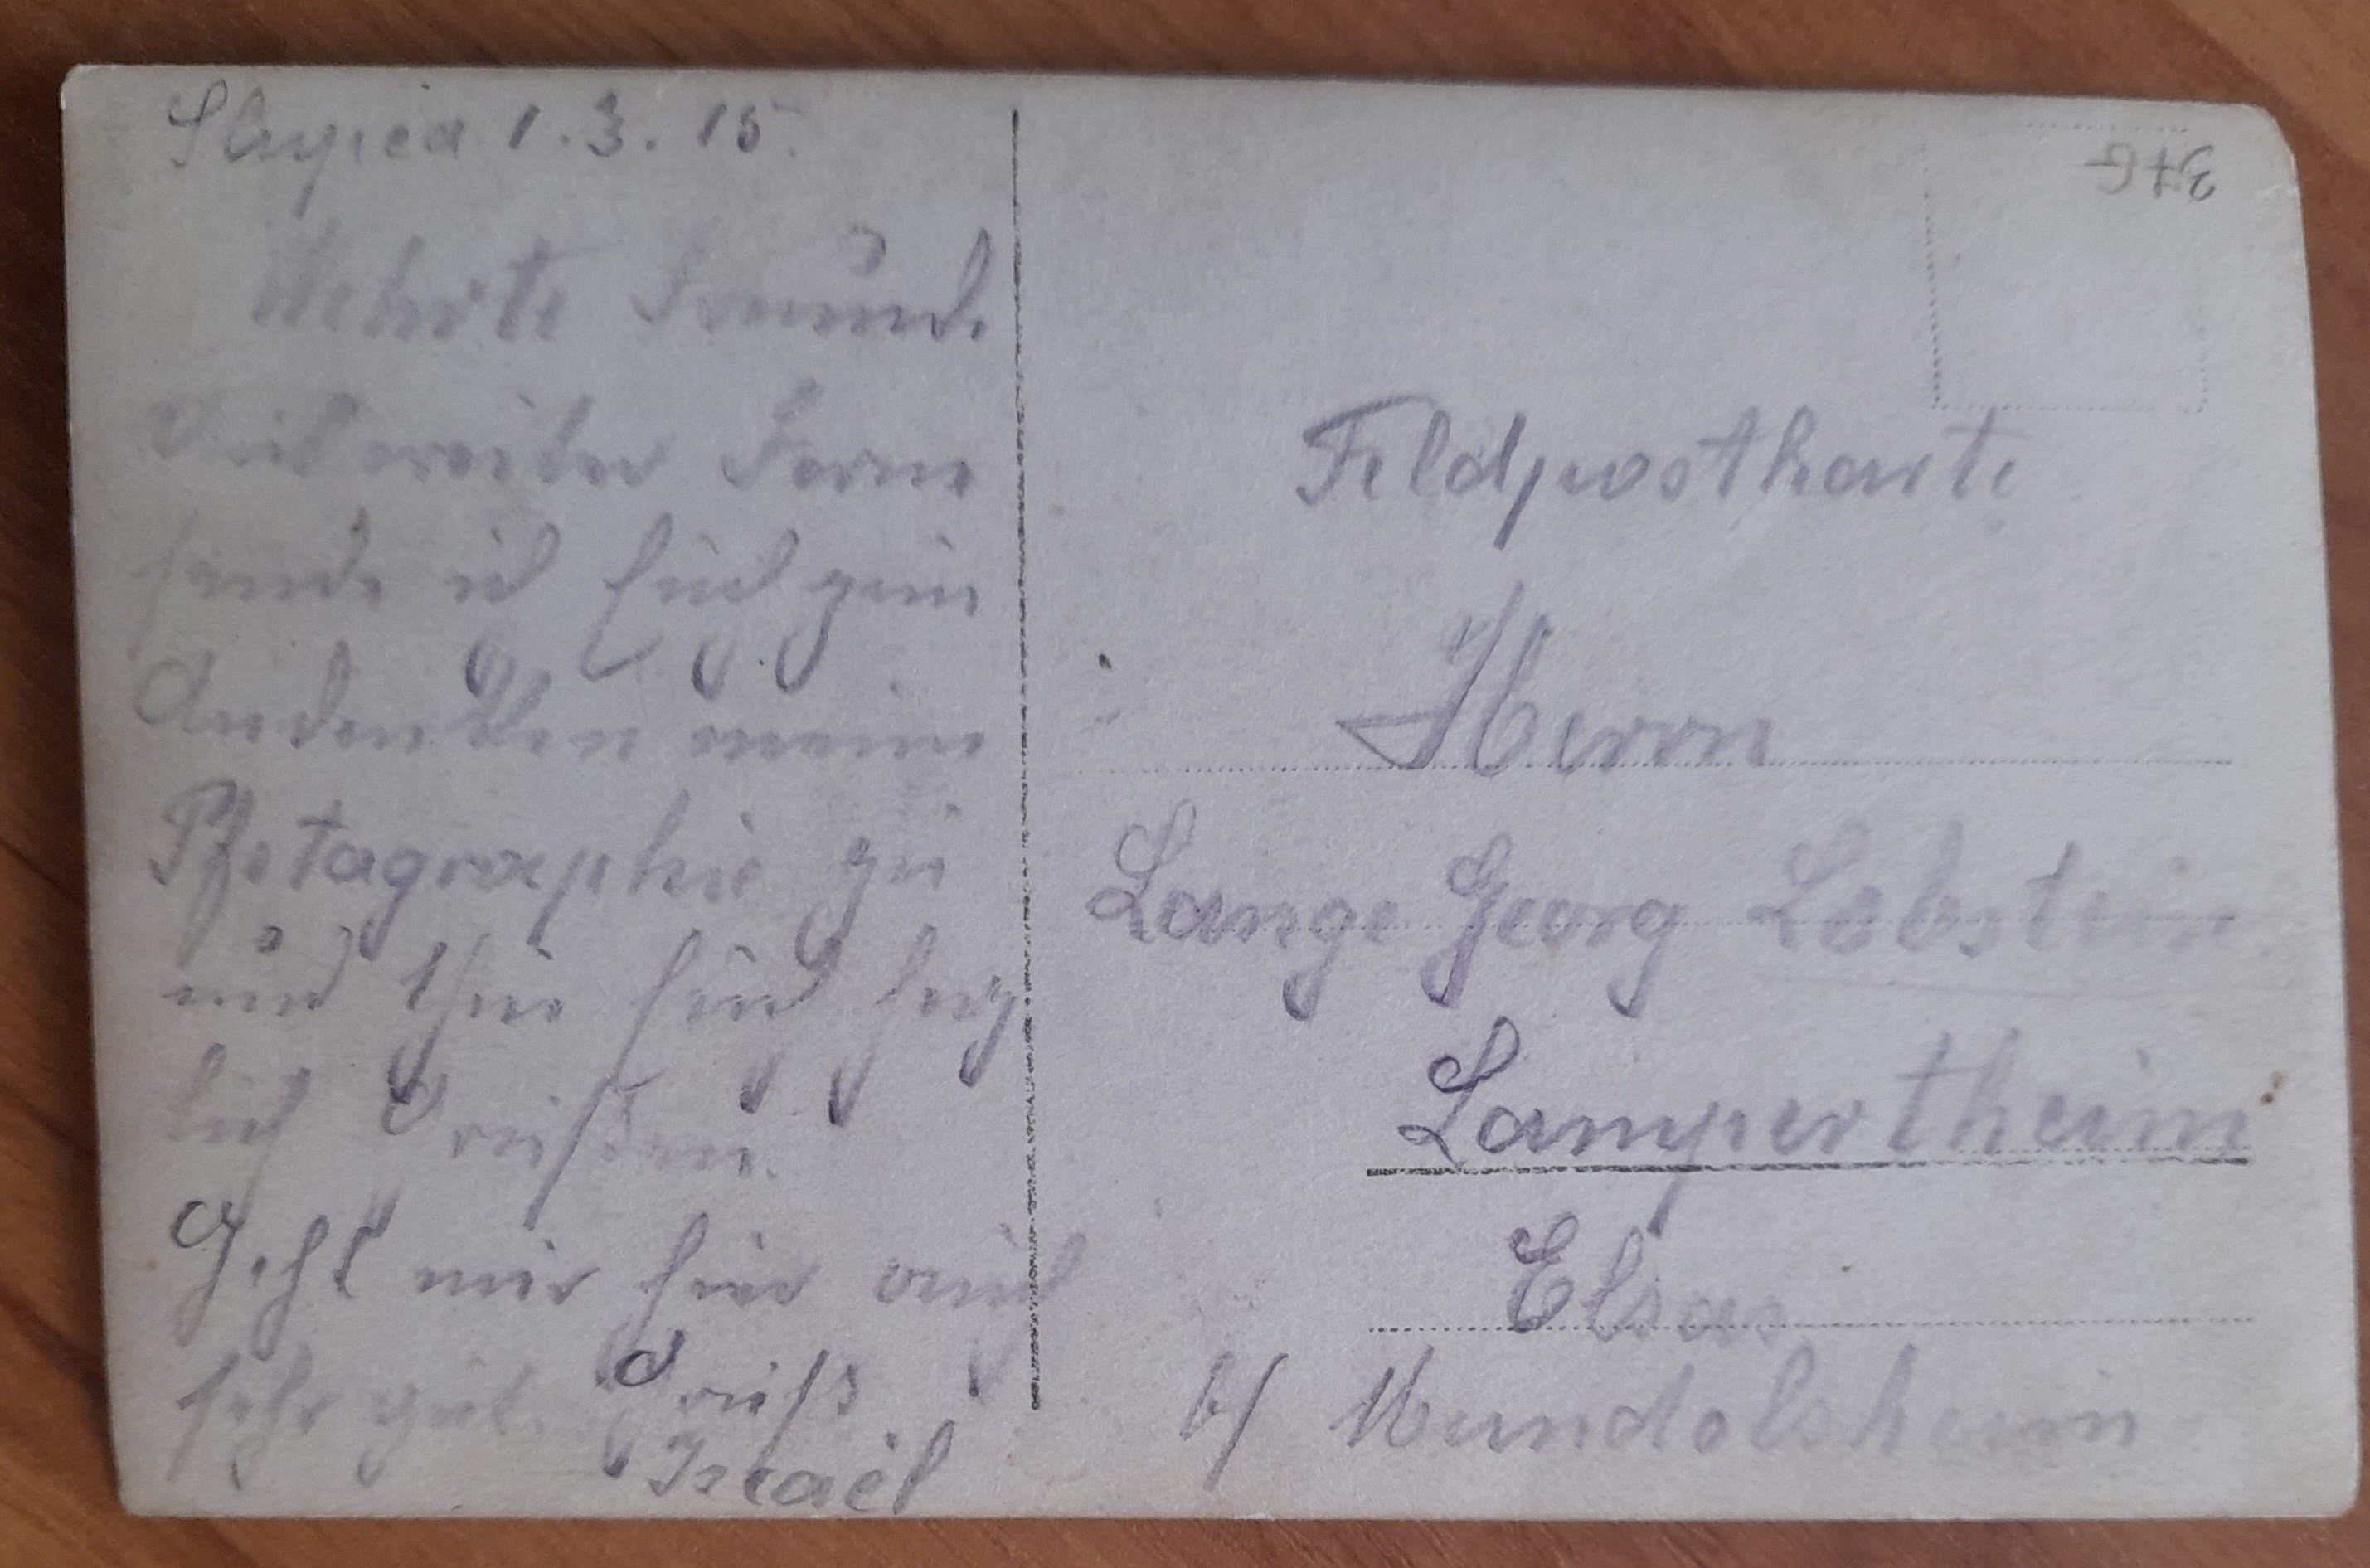 Slupca 1.3.15.
Wehrte Freund.
weiter Ferne
sende ich Euch zum
Andenken meine
Photagraphie zu
und thue Euch herz
lich Grüßen.
Geht mir hier auch
sehr gut. Gruß
Israël
376
Feldpostkarte
Herrn
Lange Georg Lobstein
Lampertheim
Elsas
b/ Mundolsheim